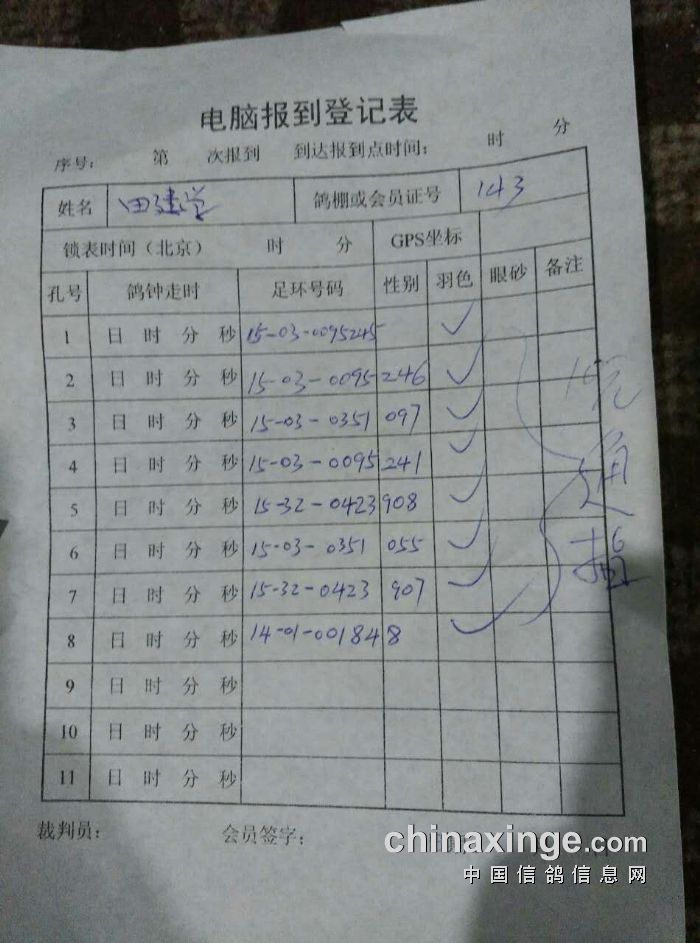 电脑报到登记表
序号： 第 次报到 到达报到点时间： 时 分
姓名 田建学 鸽棚或会员证号 143
锁表时间（北京） 时 分 GPS坐标
孔号 鸽钟走时 足环号码 性别 羽色 眼砂 备注
1 日 时 分 秒 15-03-0095245 ✓
2 日 时 分 秒 15-03-0095246 ✓
3 日 时 分 秒 15-03-0351097 ✓
4 日 时 分 秒 15-03-0095241 ✓
5 日 时 分 秒 15-32-0423908 ✓
6 日 时 分 秒 15-03-0351055 ✓
7 日 时 分 秒 15-32-0423907 ✓
8 日 时 分 秒 14-01-001848 ✓
9 日 时 分 秒
10 日 时 分 秒
11 日 时 分 秒
裁判员： 会员签字：
chinaxinge.com
中国信鸽信息网